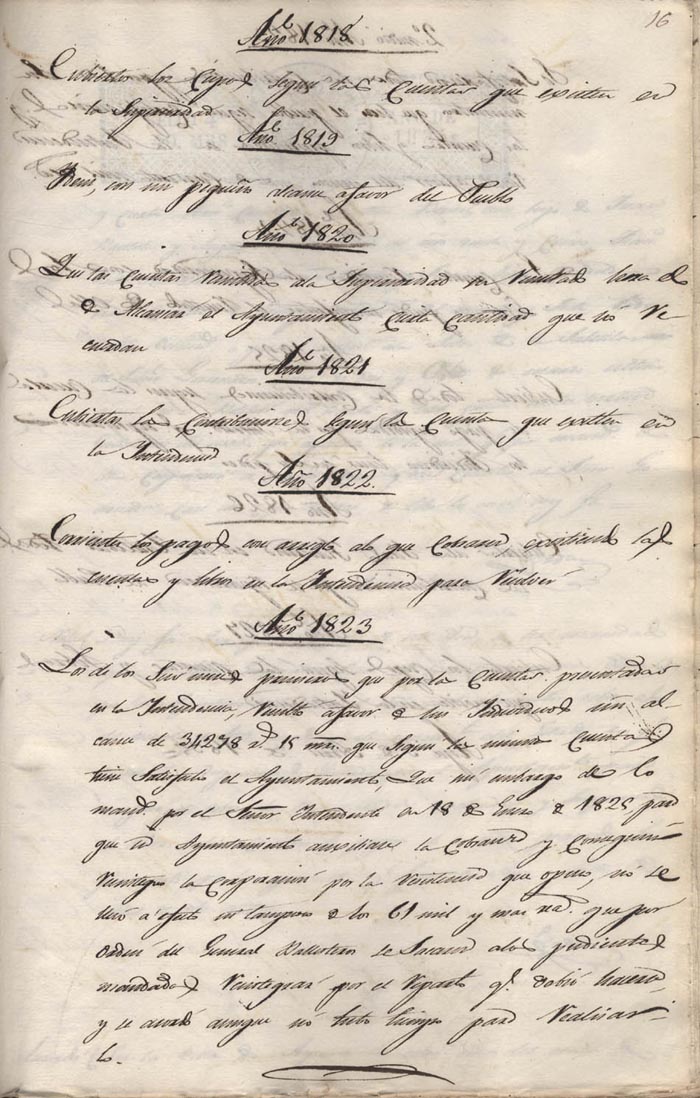 16
Año 1818
Cubiertos los Cupos segun las Cuentas que existen en
la Superioridad
Año 1819
Idem, con un pequeño alcance a favor del Pueblo
Año 1820
Que las Cuentas a la Superioridad
de el Ayuntamiento cierta cantidad que no re
cuerdan
Año 1821
Cubiertas las Contribuciones segun la Cuenta que existen en
la Intendencia
Año 1822
Corrientes los pagos con arreglo a lo que existiendo las
cuentas y libros en la Intendencia para
Año 1823
Los de los Seis meses primeros que por la Cuentas presentadas
en la Intendencia, a favor de los Individuos un al
cance de 34278 rs 15 mrs que segun las mismas Cuentas
tiene Satisfecho el Ayuntamiento, Que sin embargo de lo
mandado por el Señor Intendente en 18 de Enero de 1825 para
que el Ayuntamiento auxiliase la cobranza y Consiguiera
Reintegro la Corporacion por la resistencia que opuso, no se
llevó a efecto ni tampoco de los 61 mil y mas rs. que por
orden del General Ballesteros se Sacaron a los pudientes
mandados Reintegrar por el Reparto q.e debió hacerse
y se acordó aunque no tubo tiempo para Realizar
lo.